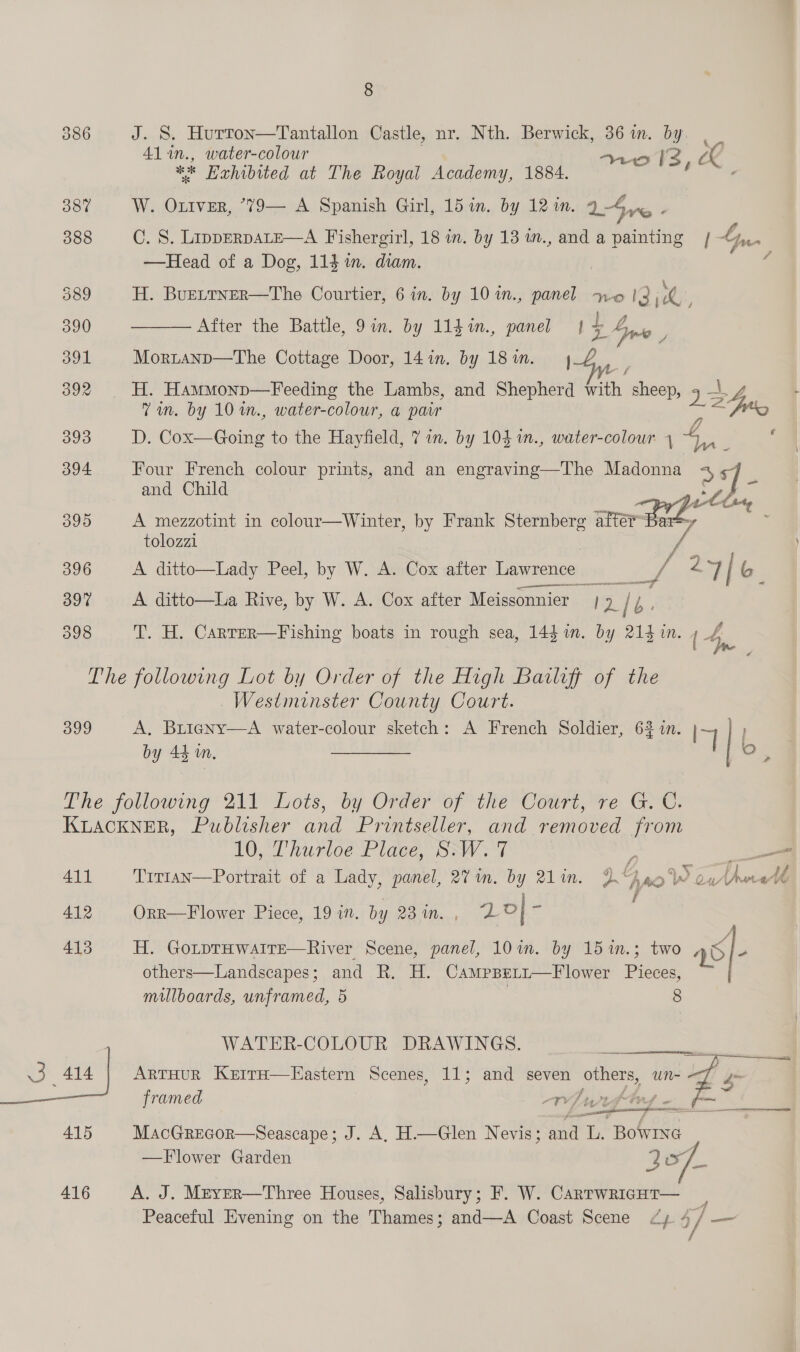 8
386 J. S. HUTTON—Tantallon Castle, nr. Nth. Berwick, 36 in. by
41 in., water-colour
** Exhibited at The Royal Academy, 1884.
387 W. OLIVER, '79— A Spanish Girl, 15 in. by 12 in.
388 C. S. LIDDERDALE—A Fishergirl, 18 in. by 13 in., and a painting
—Head of a Dog, 11½ in. diam.
389 H. BUELTNER—The Courtier, 6 in. by 10 in., panel
390 ——— After the Battle, 9 in. by 11½ in., panel
391 MORLAND—The Cottage Door, 14 in. by 18 in.
392 H. HAMMOND—Feeding the Lambs, and Shepherd with sheep,
7 in. by 10 in., water-colour, a pair
393 D. COX—Going to the Hayfield, 7 in. by 10½ in., water-colour
394 Four French colour prints, and an engraving—The Madonna
and Child
395 A mezzotint in colour—Winter, by Frank Sternberg after Bar-
tolozzi
396 A ditto—Lady Peel, by W. A. Cox after Lawrence 27/6
397 A ditto—La Rive, by W. A. Cox after Meissonnier 12/6
398 T. H. CARTER—Fishing boats in rough sea, 14½ in. by 21½ in.
The following Lot by Order of the High Bailiff of the
Westminster County Court.
399 A. BLIGNY—A water-colour sketch: A French Soldier, 6¾ in.
by 4½ in.
The following 211 Lots, by Order of the Court, re G. C.
KLACKNER, Publisher and Printseller, and removed from
10, Thurloe Place, S.W. 7
411 TITIAN—Portrait of a Lady, panel, 27 in. by 21 in.
412 ORR—Flower Piece, 19 in. by 23 in., 20/-
413 H. GOLDTHWAITE—River Scene, panel, 10 in. by 15 in.; two
others—Landscapes; and R. H. CAMPBELL—Flower Pieces,
millboards, unframed, 5 8
WATER-COLOUR DRAWINGS.
3 414 ARTHUR KEITH—Eastern Scenes, 11; and seven others, un-
framed
415 MACGREGOR—Seascape; J. A. H.—Glen Nevis; and L. BOWRING
—Flower Garden 30/-
416 A. J. MEYER—Three Houses, Salisbury; F. W. CARTWRIGHT—
Peaceful Evening on the Thames; and—A Coast Scene